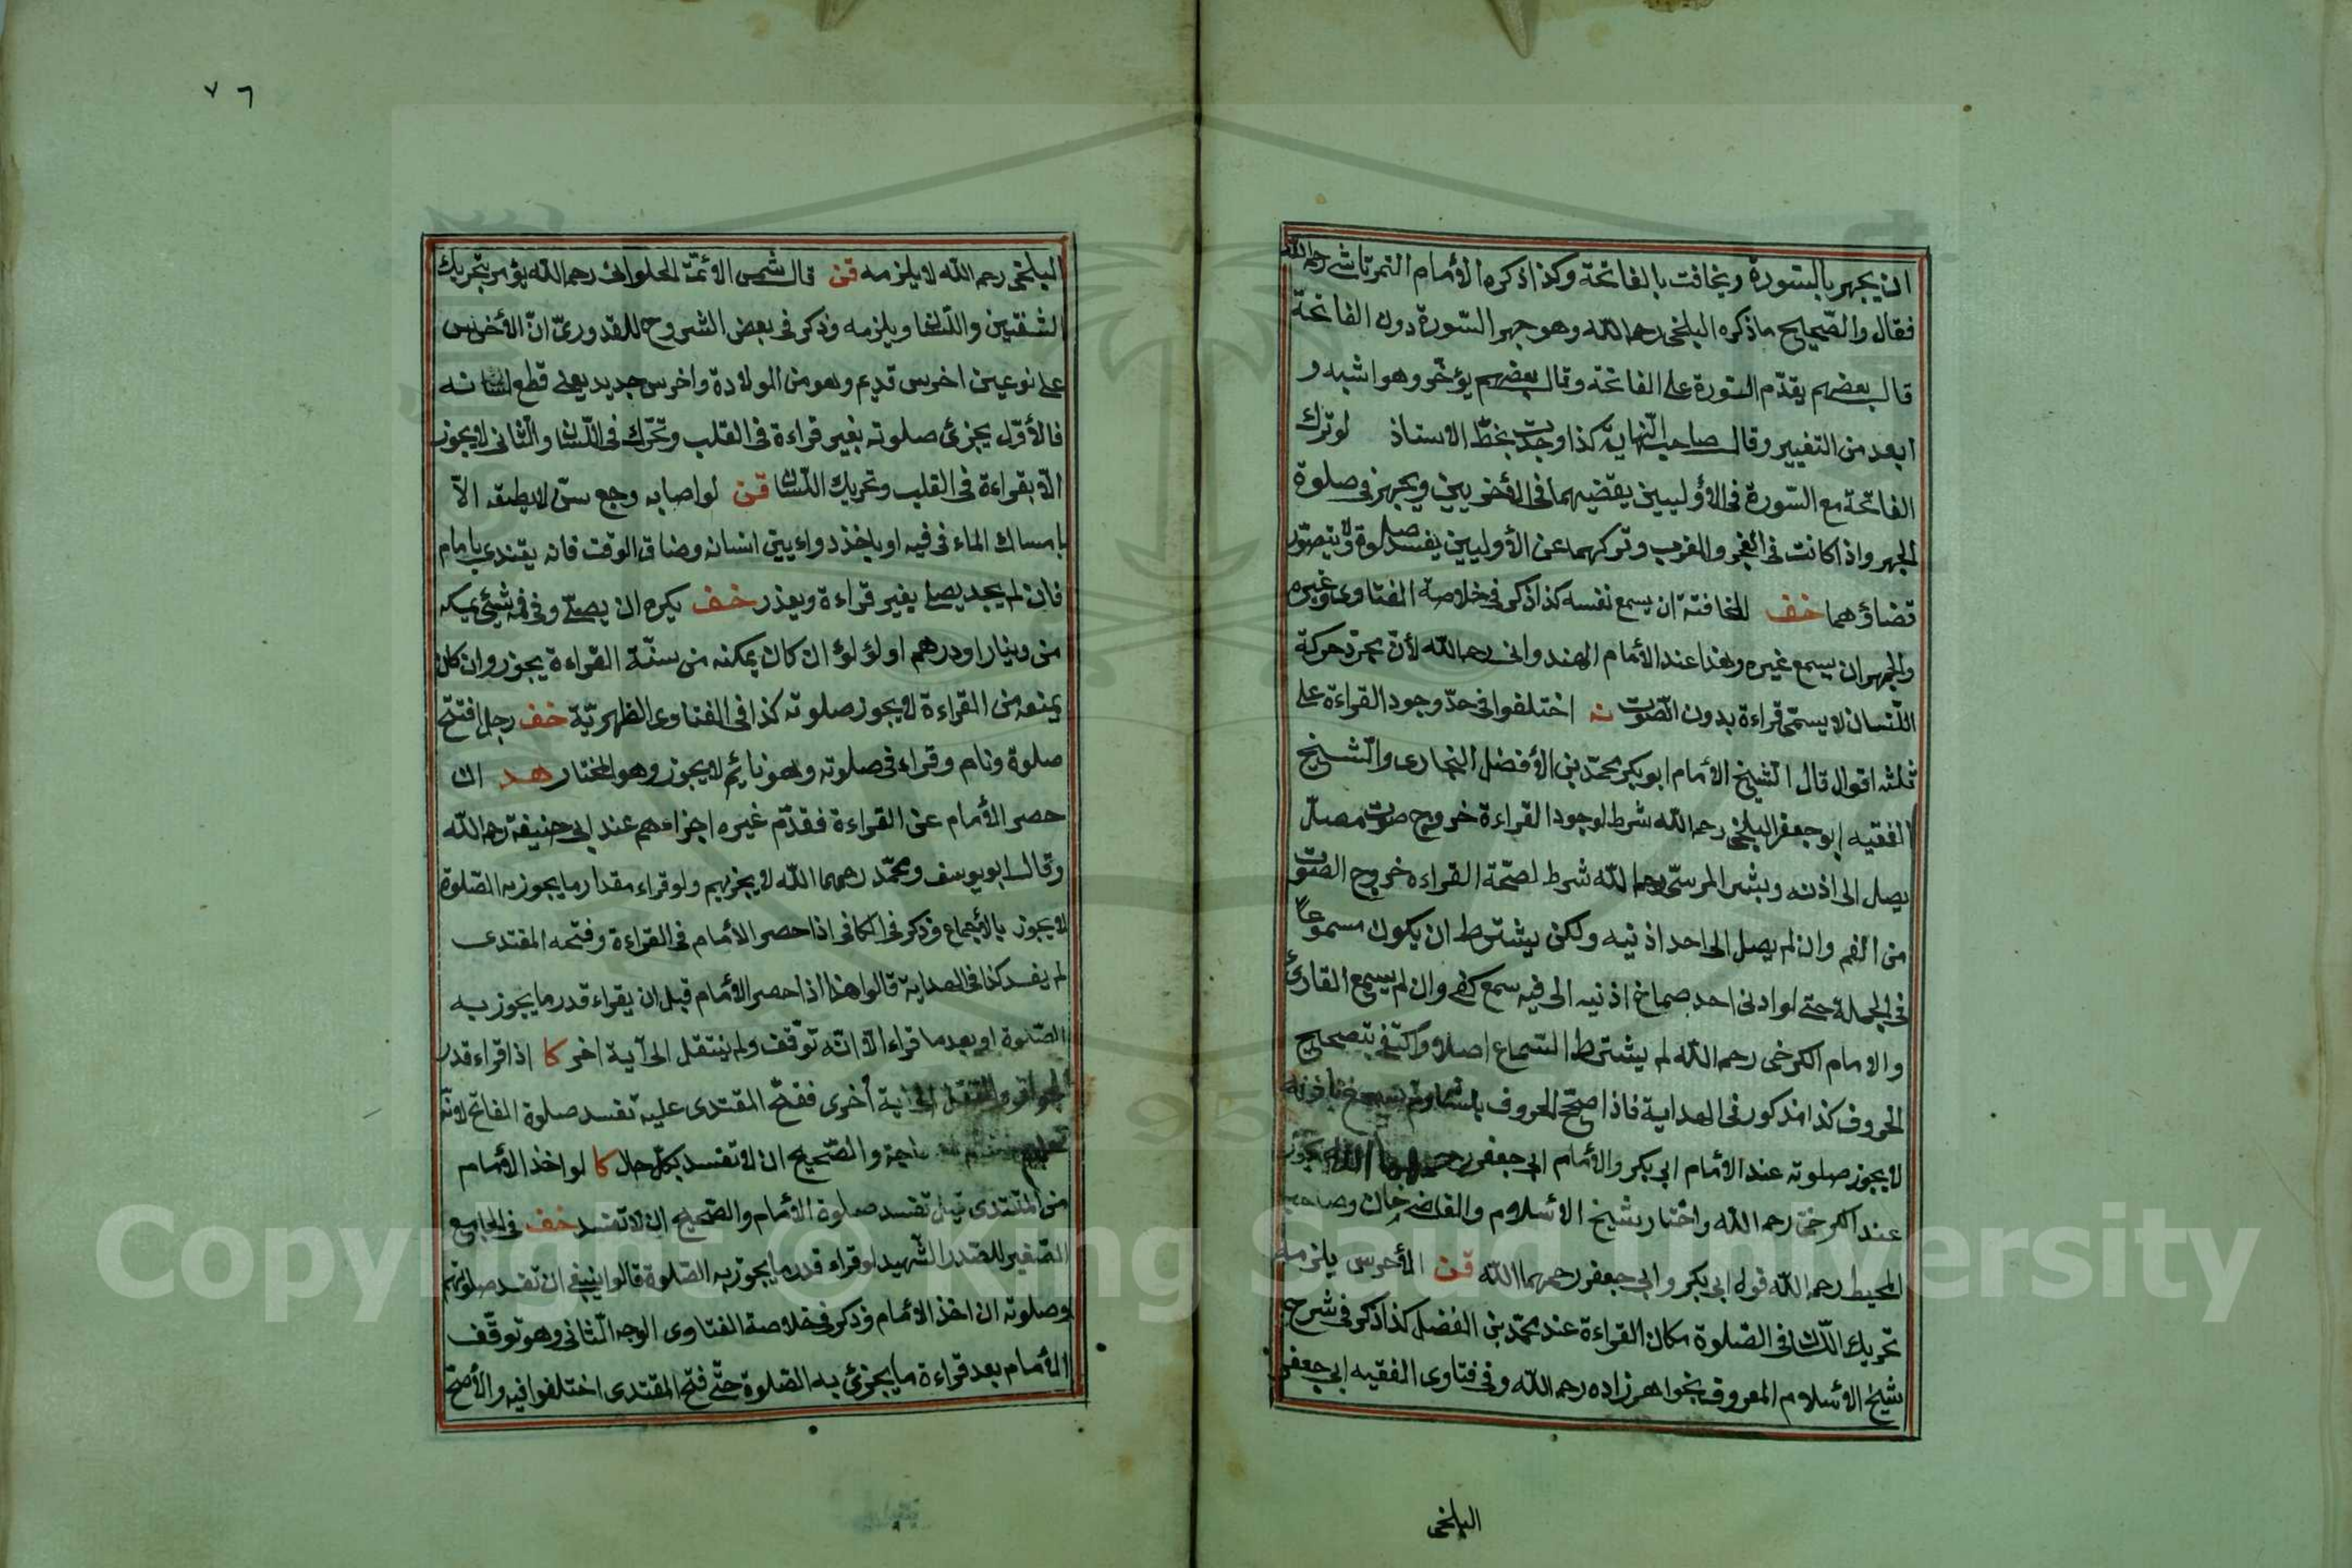 ان يجهر بالسورة ويخافت بالفاتحة وكذا ذكره الأمام التمرتاشي رحمه الله
فقال والصّحيح ما ذكره البلخى رحمه الله وهو جهر السّورة دون الفاتحة
قال بعضهم يقدّم السّورة على الفاتحة وقال بعضهم يؤخّر وهو اشبه و
ابعد من التغيير وقال صاحب النّهاية كذا وجدت بخطّ الاستاذ لو ترك
الفاتحة مع السّورة فى الأوليين يقضيهما فى الأخريين ويجهر فى صلوة
الجهر واذا كانت فى الفجر والمغرب وتركهما عن الأوليين يفسد صلوة ولا يتصوّر
قضاؤهما خف المخافتة ان يسمع نفسه كذا ذكر فى خلاصة الفتاوى وغيره
والجهر ان يسمع غيره وهذا عند الأمام الهندوانى رحمه الله لأنّ مجرّد حركة
اللّسان لا يسمّى قراءة بدون الصّوت نه اختلفوا فى حدّ وجود القراءة على
ثلثه اقوال قال الشّيخ الأمام ابو بكر محمّد بن الأفضل البخارى والشّيخ
الفقيه ابو جعفر البلخى رحمه الله شرط لوجود القراءة خروج صوت
يصل الى اذنه وبشر المرسىّ رحمه الله شرط لصحّة القراءه خروج الصّوت
من الفم وان لم يصل الى احد اذنيه ولكن يشترط ان يكون مسموعاً
فى الجملة حتى لو ادنى احد صماخ اذنيه الى فيه سمع كفى وان لم يسمع القارئ
والامام الكرخى رحمه الله لم يشترط السّماع اصلا واكتفى بتصحيح
الحروف كذا مذكور فى الهداية فاذا صحّح الحروف
لا يجوز صلوته عند الأمام ابى بكر والأمام ابى جعفر يجوز
عند الكرخىّ رحمه الله واختار شيخ الأسلام والقاضى خان وصاحب
المحيط رحمه الله قوله ابى بكر وابى جعفر رحمهما الله قن الأخرس يلزمه
تحريك اللّسان فى الصّلوة مكان القراءة عند محمّد بن الفضل كذا ذكر فى شرح
شيخ الأسلام المعروف بخواهر زاده رحمه الله وفى فتاوى الفقيه ابى جعفر
البلخى
٧٦
البلخى رحمه الله لا يلزمه قن قال شمس الأئمّة الحلوانى رحمه الله يؤمر بتحريك
الشفتين واللّسان ويلزمه وذكر فى بعض الشروح للقدورىّ انّ الأخرس
على نوعين اخرس قديم وهو من الولادة واخرس جديد يعنى قطع لسانه
فالأوّل يجزئ صلوته بغير قراءة فى القلب وتحرّك فى اللّسان والثّانى لا يجوز
الّا بقراءة فى القلب وتحريك اللّسان قن لو اصابه وجع سنّ لا يطيقه الّا
بامساك الماء فى فيه او ياخذ دواء بين اسنانه وضاق الوقت فانه يقتدى بامام
فان لم يجد يصلى بغير قراءة ويعذر خف يكره ان يصلّى وفى فمه شيئ يمسكه
من دينار او درهم او لؤلؤ ان كان يمكنه من سنّة القراءة يجوز وان كان
يمنعه من القراءة لا يجوز صلوته كذا فى الفتاوى الظهيريّة خف رجل افتتح
صلوة ونام وقراء فى صلوته وهو نائم لا يجوز وهو المختار هد ان
حصر الأمام عن القراءة فقدّم غيره اجزاءهم عند ابى حنيفة رحمه الله
وقال ابو يوسف ومحمّد رحمهما الله لا يجزيهم ولو قراء مقدار ما يجوز به الصّلوة
لا يجوز بالأجماع وذكر فى الكافى اذا حصر الأمام فى القراءة وفتحه المقتدى
لم يفسد كذا فى الهداية قالوا هذا اذا حصر الأمام قبل ان يقراء قدر ما يجوز به
الصّلوة او بعد ما قراء الّا انّه توقّف ولم ينتقل الى آية اخر كا اذا قراء قدر
الجواز وانتقل الى آية أخرى ففتح المقتدى عليه تفسد صلوة الفاتح لأنّه
حاجة والصّحيح ان لا تفسد بكلّ حال كا لو اخذ الأمام
من المقتدى قيل تفسد صلوة الأمام والصّحيح ان لا تفسد خف فى الجامع
الصّغير للصّدر الشّهيد لو قراء قدر ما يجوز به الصّلوة قالوا ينبغى ان تفسد صلوتهم
وصلوته ان اخذ الأمام وذكر فى خلاصة الفتاوى الوجه الثّانى وهو توقّف
الأمام بعد قراءة ما يجزئ به الصّلوة حتّى فتح المقتدى اختلفوا فيه والأصحّ
Copyright © King Saud University